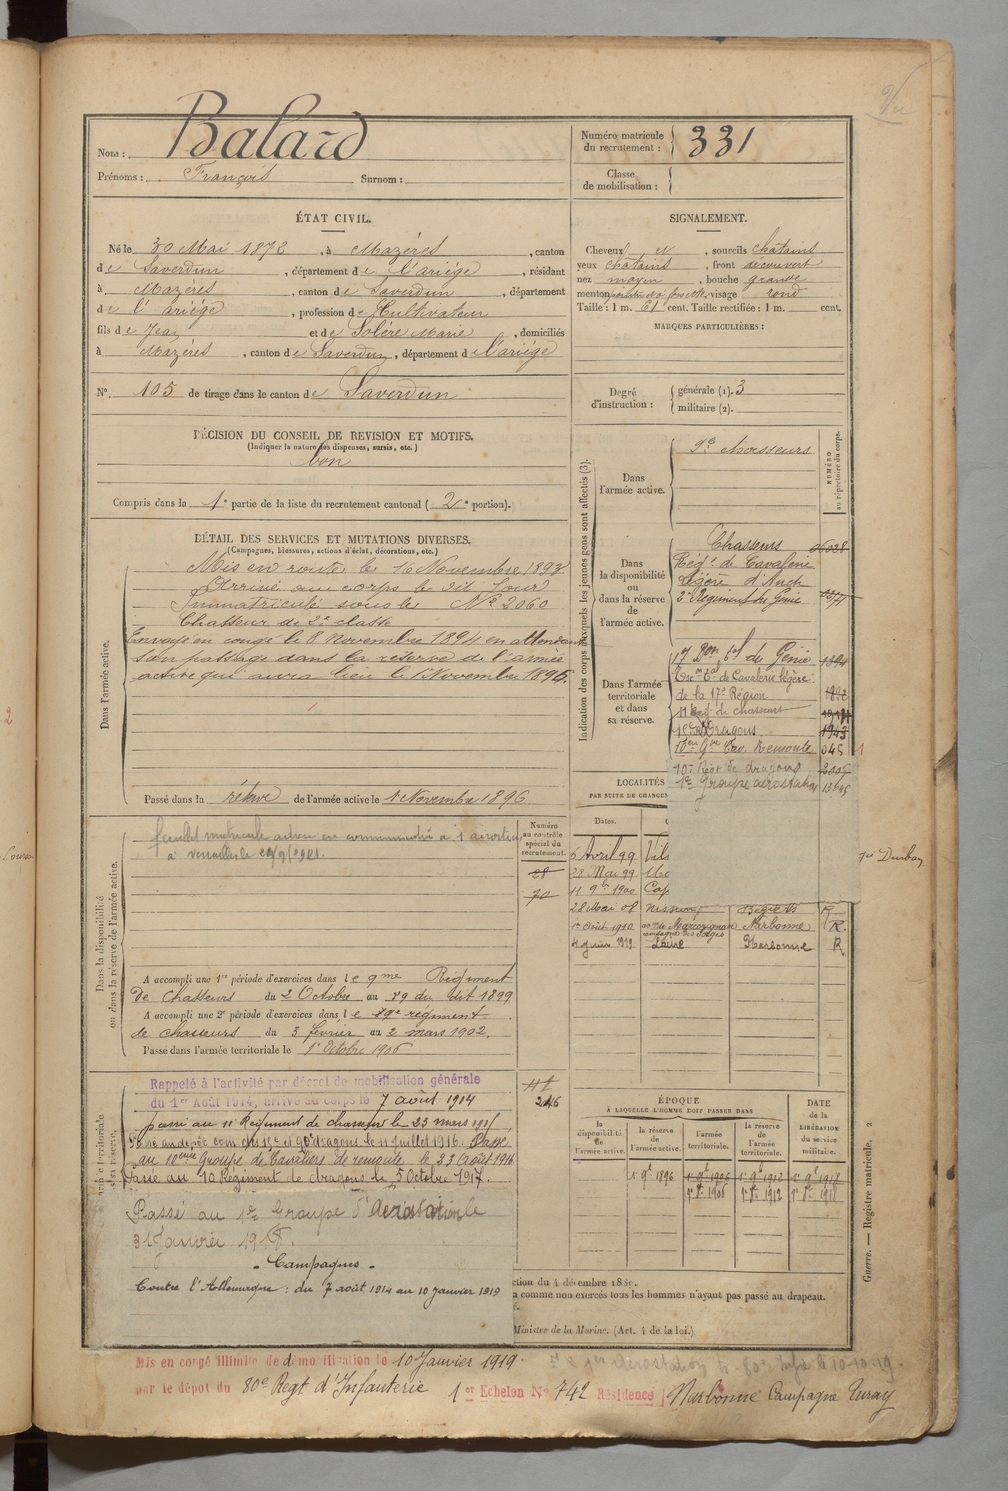 Vu
Nom : Balard
Prénoms : François Surnom :
Numéro matricule du recrutement : 331
Classe de mobilisation :
ÉTAT CIVIL.
Né le 30 Mai 1872, à Mazères, canton
de Saverdun, département de l'ariége, résidant
à Mazères, canton de Saverdun, département
de l'ariége, profession de Cultivateur
fils de Jean et de Solére Marie, domiciliés
à Mazéres, canton de Saverdun, département de l'ariége
N° 105 de tirage dans le canton de Saverdun
SIGNALEMENT.
Cheveux et, sourcils chatains
yeux chatains, front découvert
nez moyen, bouche grande
menton visage rond
Taille : 1 m. 61 cent. Taille rectifiée : 1 m. cent.
MARQUES PARTICULIÈRES :
Degré d'instruction : générale (1). 3
militaire (2).
DÉCISION DU CONSEIL DE REVISION ET MOTIFS.
(Indiquer la nature des dispenses, sursis, etc.)
bon
Compris dans la 1e partie de la liste du recrutement cantonal (2e portion).
DÉTAIL DES SERVICES ET MUTATIONS DIVERSES.
(Campagnes, blessures, actions d'éclat, décorations, etc.)
Dans l'armée active.
Mis en route le 16 Novembre 1893
Arrivé au corps le dit Jour
Immatriculé sous le No 2060
Chasseur de 2e classe
Envoyé en congé le 8 Novembre 1894 en attendant
son passage dans la réserve de l'armée
active qui aura lieu le 1 Novembre 1896.
Passé dans la réserve de l'armée active le 1 Novembre 1896.
Indication des corps auxquels les jeunes gens sont affectés (3).
NUMÉRO au répertoire du corps.
Dans l'armée active.
9e Chasseurs
Dans la disponibilité ou dans la réserve de l'armée active.
Chasseurs
Régt de Cavalerie
Légère d'Auch
2e Régiment du Génie
Dans l'armée territoriale et dans sa réserve.
17 Bon tal du Génie 1394
de Cavalerie légère
de la 17e Région 1892
11 Regt de chasseurs
Dragons 1943
10eme Gpe Cav. Remonte 045 1
10e Régt de dragons
1er Groupe aérostation
LOCALITÉS
PAR SUITE DE CHANGEM
Dates.
6 Avril 99
28 Mai 99
11 9bre 1900 Cap
28 Mai 08 Nissan Béziers R
1er Août 1910 Narbonne R.
Narbonne R
Dans la disponibilité ou dans la réserve de l'armée active.
Numéro au contrôle spécial du recrutement.
70
A accompli une 1re période d'exercices dans le 9me Régiment
De Chasseurs du 2 Octobre au 29 du dit 1899
A accompli une 2e période d'exercices dans le 19e régiment
de chasseurs du 3 février au 2 mars 1902.
Passé dans l'armée territoriale le 1er Octobre 1906
Rappelé à l'activité par décret de mobilisation générale
du 1er Août 1914, arrivé au corps le 7 août 1914
passé au 11e Régiment de chasseurs le 23 mars 1915
dragons le 11 juillet 1916. Passé
au 10eme Groupe de Cavaliers de remonte le 23 Août 1916
Passé au 10 Régiment de dragons le 5 Octobre 1917.
Passé au 1er Groupe d'Aerostation le
31 Janvier 1918.
Campagnes
Contre l'Allemagne : du 7 août 1914 au 10 Janvier 1919
246
ÉPOQUE
À LAQUELLE L'HOMME DOIT PASSER DANS
la disponibilité de l'armée active.
la réserve de l'armée active.
l'armée territoriale.
la réserve de l'armée territoriale.
DATE de la LIBÉRATION du service militaire.
1er 9bre 1896
1er 8bre 1906
1er 8bre 1912
1er 8bre 1918
ction du 4 décembre 1889.
a comme non exercés tous les hommes n'ayant pas passé au drapeau.
Ministre de la Marine. (Art. 4 de la loi.)
Guerre. — Registre matricule. 2
Mis en congé illimité de démobilisation le 10 Janvier 1919.
par le dépôt du 80e Regt d'Infanterie 1er Echelon No 742 Résidence Narbonne Campagne Turay